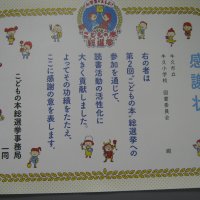 感謝状
牛久市立
牛久小学校 図書委員会 殿
右の者は
第2回"こどもの本"総選挙への
参加を通じて、
読書活動の活性化に
大きく貢献しました。
よってその功績をたたえ、
ここに感謝の意を表します。
こどもの本総選挙事務局
一同